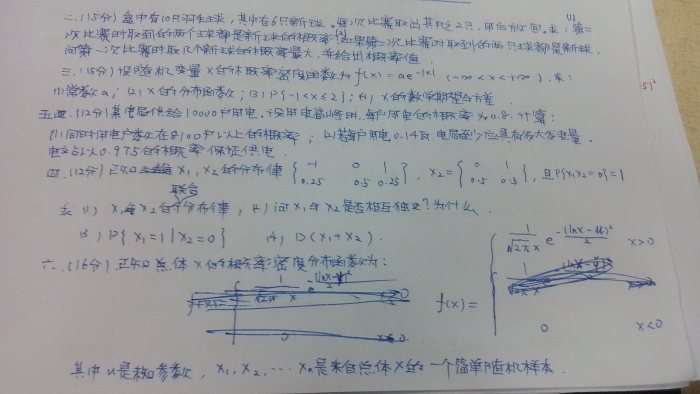 二.(15分)盒中有10只羽毛球,其中有6只新球.每次比赛取出其中之2只,用后放回.求:(1)第二
次比赛时取到的两个球都是新球的概率(2)如果第二次比赛时取到的两只球都是新球,
问第一次比赛时取几个新球的概率最大,并给出概率值.
三.(15分)设随机变量X的概率密度函数为f(x)=ae^{-|x|} (-∞<x<+∞).求:
(1)常数a;(2)X的分布函数;(3)P{-1<X≤2};(4)X的数学期望与方差.
五.(12分)某电局供给10000户用电.设用电高峰时,每户用电的概率为0.8.计算:
(1)同时用电户数在8100户以上的概率;(2)若每户用电0.14瓦,电局至少应具有多大发电量.
电立占以0.975的概率保证供电.
四.(12分)已知 X₁,X₂的分布律 {-1 0 1 0.25 0.5 0.25}, X₂={0 1 0.5 0.5},且P{X₁X₂=0}=1
联合
求(1)X₁与X₂的分布律,(2)问X₁与X₂是否相互独立?为什么.
(3)P{X₁=1|X₂=0} (4)D(X₁+X₂).
六.(16分)已知总体X的概率密度分布函数为:
f(x)= { 1/(√2π x) e^{-(lnx-u)²/2} x>0
0 x<0
其中u是未知参数,X₁,X₂,…Xₙ是来自总体X的一个简单随机样本.